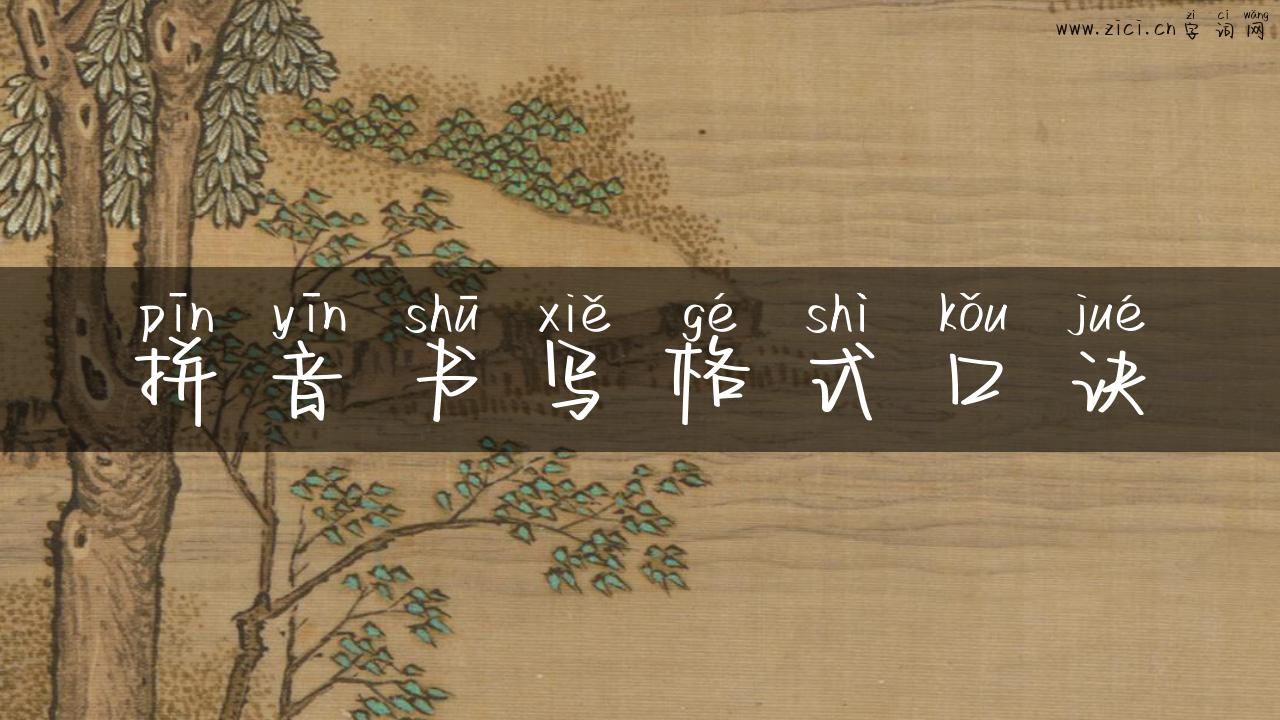 zì cí wǎng
www.zici.cn 字词网
pīn yīn shū xiě gé shì kǒu jué
拼音书写格式口诀